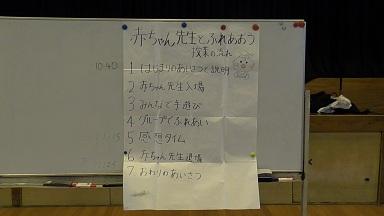 赤ちゃん先生とふれあおう
授業の流れ
10:40
1 はじまりのあいさつと説明
2 赤ちゃん先生入場
3 みんなで手遊び
4 グループでふれあい
5 感想タイム
6 赤ちゃん先生退場
11:25
7 おわりのあいさつ